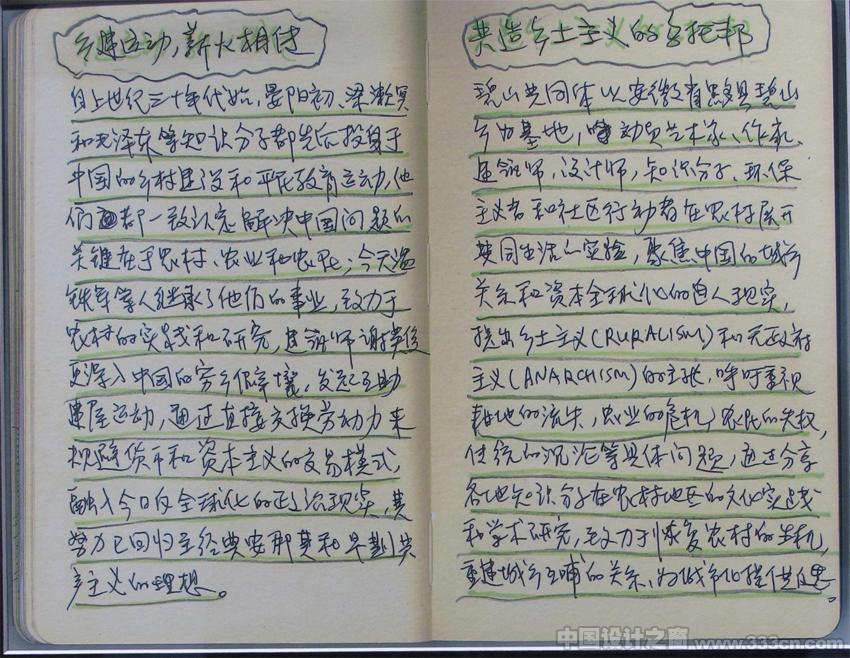 乡建运动,薪火相传
自上世纪二十年代始,晏阳初、梁漱溟
和毛泽东等知识分子都先后投身于
中国的乡村建设和平民教育运动,他
们都一致认定解决中国问题的
关键在于农村、农业和农民;今天温
铁军等人继承了他们的事业,致力于
农村的实践和研究,建筑师谢英俊
更深入中国的穷乡僻壤,发起互助
建屋运动,通过直接交换劳动力来
规避货币和资本主义的交易模式,
融入今日反全球化的政治现实,其
努力已回归至经典安那其和早期共
产主义的理想。
共造乡土主义的乌托邦
碧山共同体以安徽省黟县碧山
乡为基地,动员艺术家、作家、
建筑师,设计师,知识分子、环保
主义者和社区行动者在农村展开
共同生活的实验,聚焦中国的城乡
关系和资本全球化的逼人现实,
提出乡土主义(RURALISM)和无政府
主义(ANARCHISM)的主张,呼吁重视
耕地的流失,农业的危机,农民的失权,
传统的沉沦等具体问题,通过分享
各地知识分子在农村地区的文化实践
和学术研究,致力于恢复农村的生机,
重建城乡互哺的关系,为城市化提供反思。
中国设计之窗 www.333cn.com